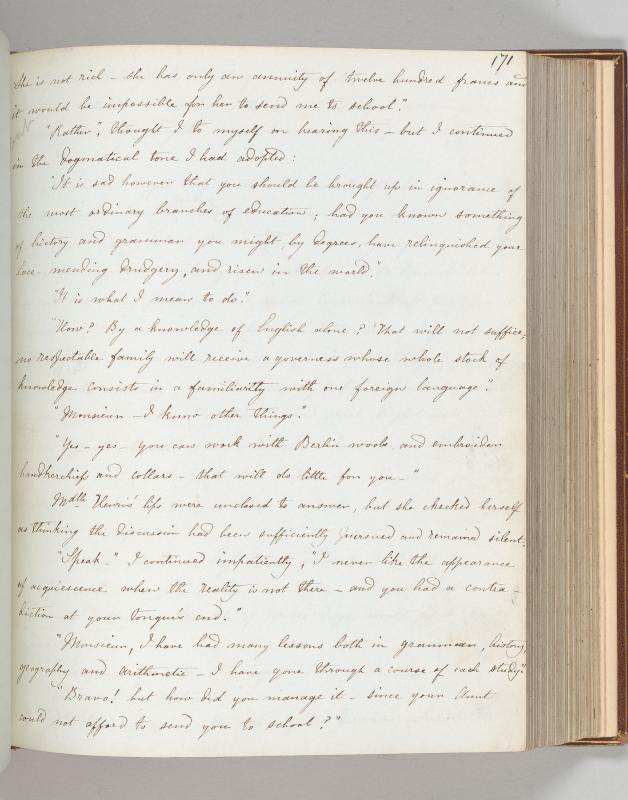 171
She is not rich – she has only an annuity of twelve hundred francs and
it would be impossible for her to send me to school."
"Rather", thought I to myself on hearing this – but I continued
in the dogmatical tone I had adopted:
"It is sad however that you should be brought up in ignorance of
the most ordinary branches of education; had you known something
of history and grammar you might, by degrees, have relinquished your
lace-mending drudgery, and risen in the world."
"It is what I mean to do."
"How? By a knowledge of English alone? That will not suffice;
no respectable family will receive a governess whose whole stock of
knowledge consists in a familiarity with one foreign language."
"Monsieur – I know other things."
"Yes – yes – you can work with Berlin wools, and embroider
handkerchiefs and collars – that will do little for you –"
Mdlle Henri's lips were unclosed to answer, but she checked herself
as thinking the discussion had been sufficiently pursued and remained silent.
"Speak –" I continued impatiently, "I never like the appearance
of acquiescence when the reality is not there – and you had a contra-
diction at your tongue's end."
"Monsieur, I have had many lessons both in grammar, history,
geography and arithmetic – I have gone through a course of each study."
"Bravo! but how did you manage it – since your Aunt
could not afford to send you to school?"